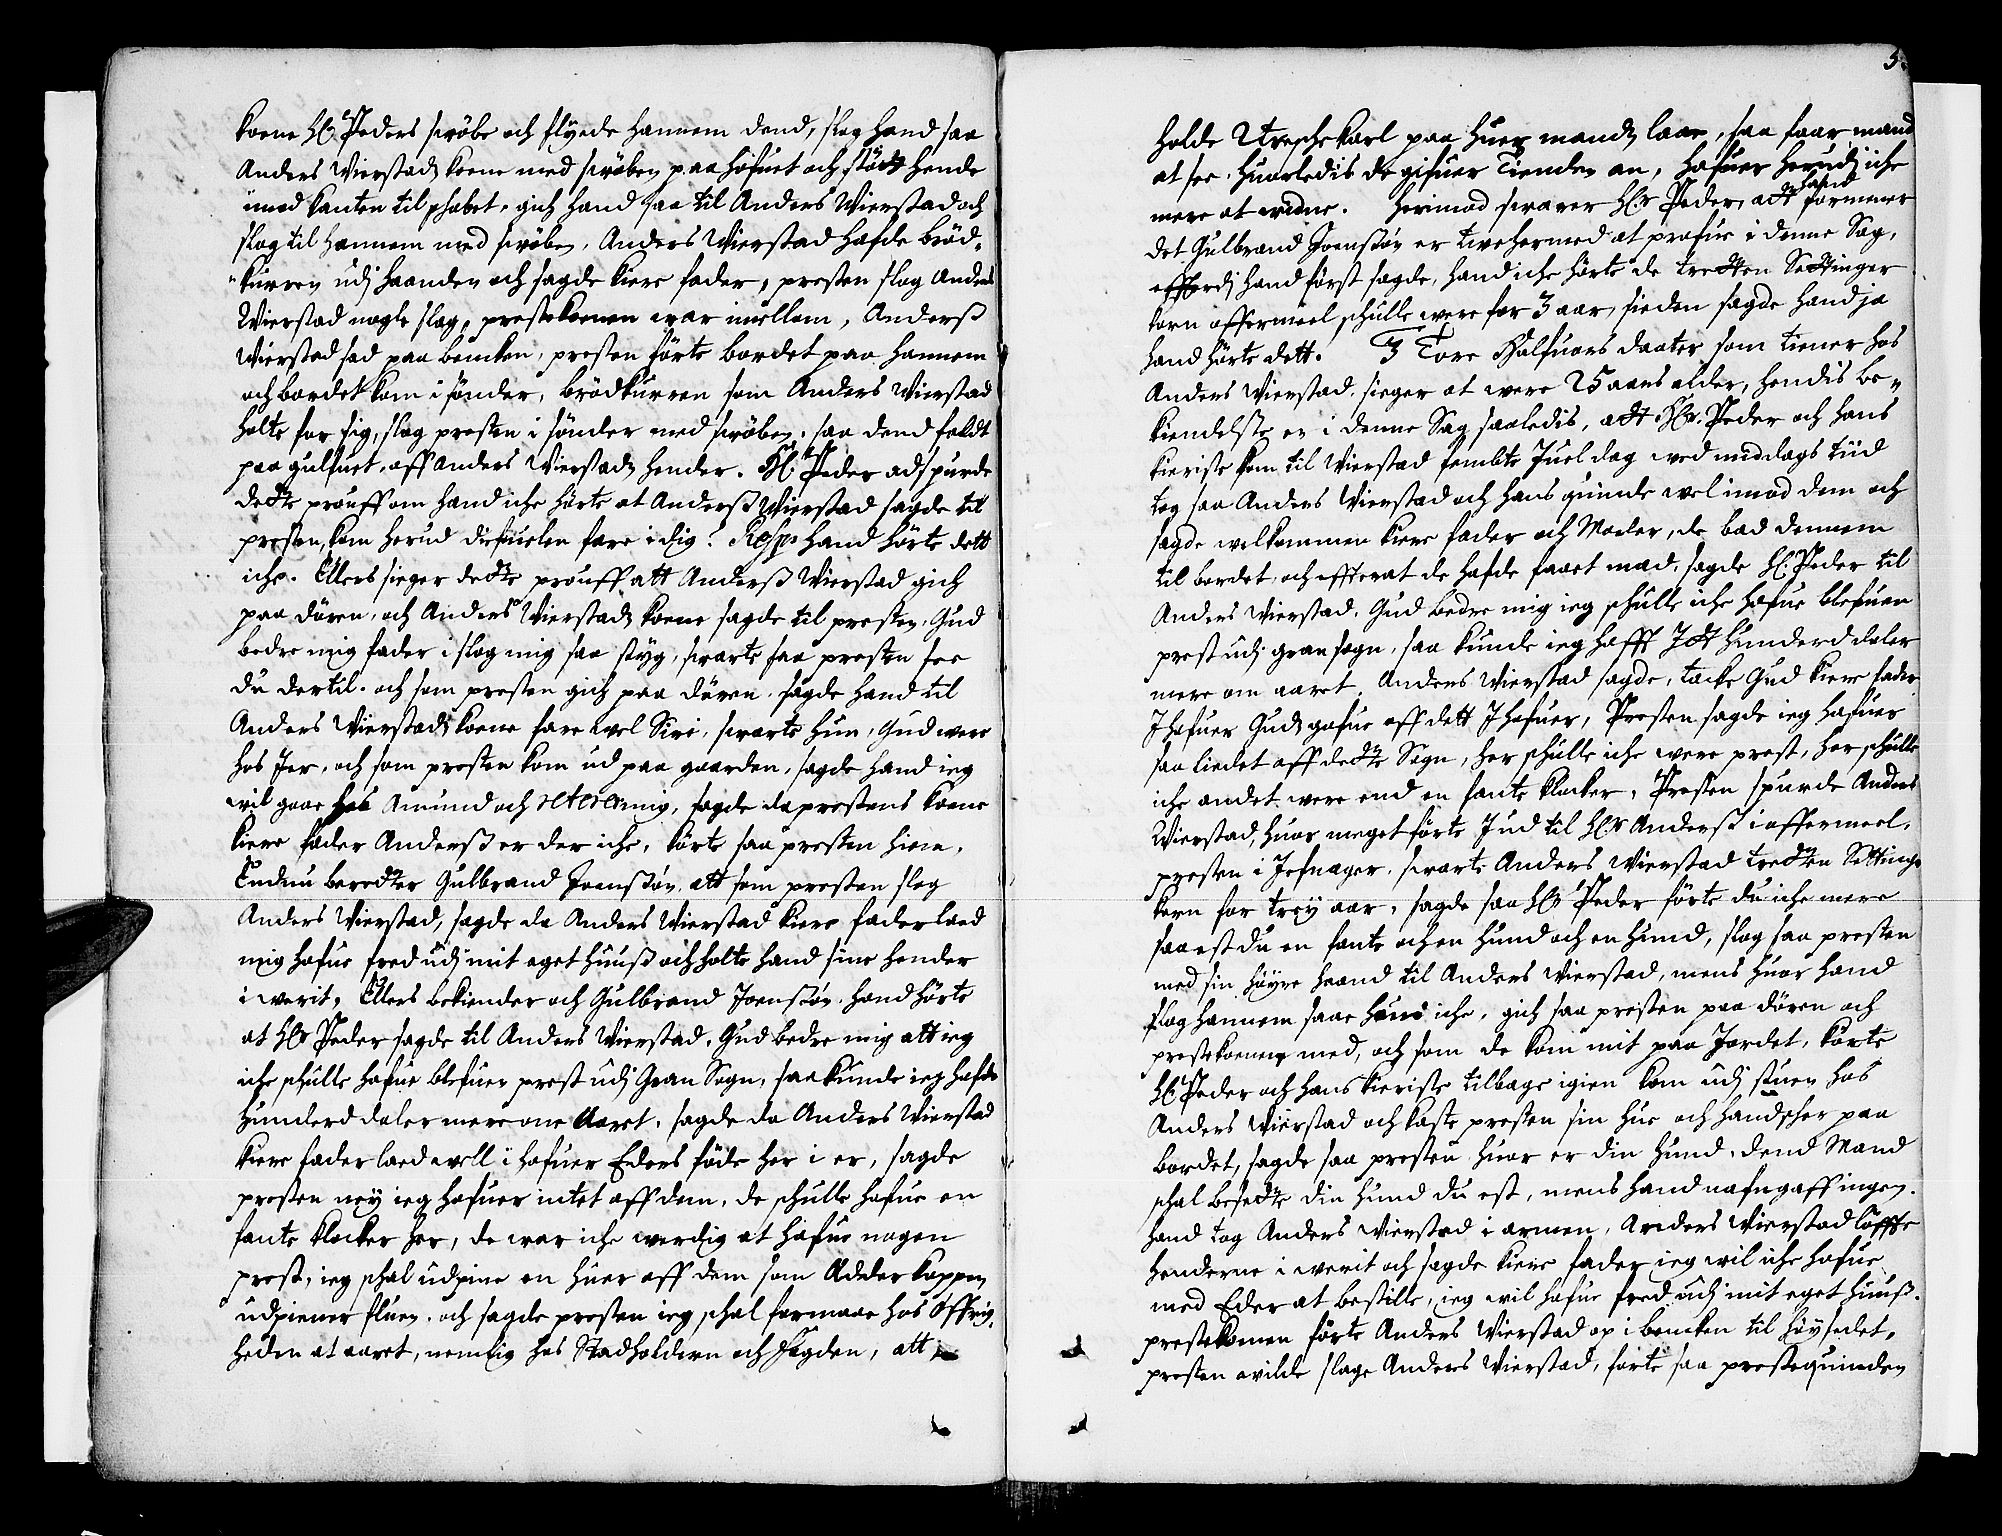 koene Hr Peders swöbe och flyede hannem dend, slog hand saa
Anders Wierstads koene med swöben paa hofuet och stödte hende
imod kanten til skabet, gich hand saa til Anders Wierstad och
slog til hannem med swöben, Anders Wierstad hafde bröd-
kurren udj haanden och sagde kiere fader, presten slog Anders
Wierstad nogle slag, prestekoenen war imellem, Anderss
Wierstad sad paa bencken, presten förte bordet paa hannem
och bordet kom i sönder, brödkurren som Anders Wierstad
holte for sig, slog presten i sönder med swöben, saa dend faldt
paa gulfuet, aff Anders Wierstads hender. Hr Peder adspurde
dette prouff om hand iche hörte at Anderss Wierstad sagde til
presten, kom herud diefuelen fare i dig? Resps hand hörte dett
iche. Ellers sieger dette prouff att Anderss Wierstad gich
paa dören, och Anders Wierstads koene sagde til presten, Gud
bedre mig fader i slog mig saa styg, swarte saa presten see
du dertil. och som presten gich paa dören, sagde hand til
Anders Wierstads koene fare wel Siri, swarte hun, Gud were
hos Jer, och som presten kom ud paa gaarden, sagde hand ieg
wil gaae hos Amund och mig, sagde da prestens koene
kiere fader Anderss er der iche, körte saa presten hiem,
Endnu beretter Gulbrand Joenstöv, att som presten slog
Anders Wierstad, sagde da Anders Wierstad kiere fader laed
mig hafue fred udj mit eget huuss och holte hand sine hender
i werit, Ellers bekiender och Gulbrand Joenstöv, hand hörte
at Hr Peder sagde til Anders Wierstad, Gud bedre mig att ieg
iche schulle hafue blefuen prest udj Gran Sogn, saa kunde ieg hafde
hunderd daler mere om Aaret, sagde da Anders Wierstad
kiere fader laed well i hafuer Eders föde her i er, sagde
presten ney ieg hafuer intet aff dem, de schulle hafue en
fante klocker her, de war iche werdig at hafue nogen
prest, ieg schal udpine en huer aff dem som Edderkoppen
udpiener fluen. och sagde presten ieg schal formaae hos Öffrig-
heden at aaret, nemlig hos Stadholdern och Fogden, att
holde Treschekarl paa huer mands laae, saa faar mand
at see, huorledis de gifuer Tienden an, hafuer herudj iche
mere at widne. Herimod swarer Hr Peder, att hand formener
det Gulbrand Joenstöv er twehermed at profue i denne Sag,
efferdj hand först sagde, hand iche hörte de tretten Settinger
korn offermeel schulle were for 3 aar, sieden sagde hand ja
hand hörte dett. 3 Tore Halfuors daater som tiener hos
Anders Wierstad, sieger at were 25 aars alder, hendis be-
kiendelsse er i denne Sag saaledis, att Hr. Peder och hans
kieriste kom til Wierstad fembte Juel dag wed middags tiid
tog saa Anders Wierstad och hans quinde wel imod dem och
sagde welkommen kiere fader och Moder, de bad dennem
til bordet, och effterat de hafde faaet mad, sagde Hr. Peder til
Anders Wierstad, Gud bedre mig ieg schulle iche hafue blefuen
prest udj gran sogn, saa kunde ieg hafft Jtt hunderd daler
mere om aaret. Anders Wierstad sagde, tacke Gud kiere fader
J hafuer Guds gafue aff dett J hafuer, Presten sagde ieg hafuer
saa liedet aff dette Sogn, her schulle iche were prest, her schulle
iche andet were end en fante klocker, Presten spurde Anders
Wierstad, huor meget förte J ud til Hr Anderss i offermeel,
presten i Jefnager, swarte Anders Wierstad tretten Settinge
korn for trey aar, sagde saa Hr Peder förte du iche mere
saa est du en fante och en hund och en hund, slog saa presten
med sin höyre haand til Anders Wierstad, mens huor hand
slog hannem saae hun iche, gich saa presten paa dören och
prestekoenen med, och som de kom mit paa Jordet, körte
Hr Peder och hans kieriste tilbage igien kom udj stuen hos
Anders Wierstad och kaste presten sin hue och handscher paa
bordet, sagde saa presten huor er din hund, dend Mand
schal besette din hund du est, mens hand nafngaff ingen.
hand tog Anders Wierstad i armen, Anders Wierstad löffte
henderne i werit och sagde kiere fader ieg wil iche hafue
med Eder at bestille, ieg wil hafue fred udj mit eget huuss.
prestekonen förte Anders Wierstad op i bencken til höysedet,
presten wilde slage Anders Wierstad, förte saa prestequinden